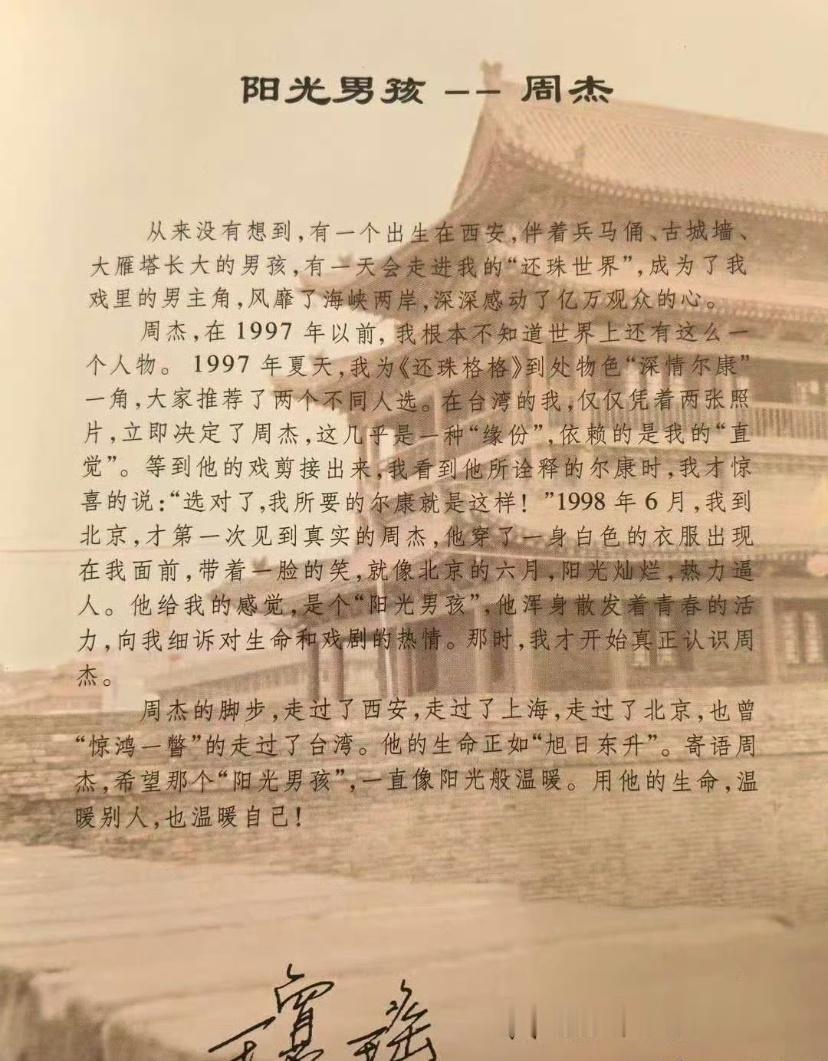 阳光男孩 -- 周杰
从来没有想到,有一个出生在西安,伴着兵马俑、古城墙、
大雁塔长大的男孩,有一天会走进我的“还珠世界”,成为了我
戏里的男主角,风靡了海峡两岸,深深感动了亿万观众的心。
周杰,在 1997 年以前,我根本不知道世界上还有这么一
个人物。1997 年夏天,我为《还珠格格》到处物色“深情尔康”
一角,大家推荐了两个不同人选。在台湾的我,仅仅凭着两张照
片,立即决定了周杰,这几乎是一种“缘份”,依赖的是我的“直
觉”。等到他的戏剪接出来,我看到他所诠释的尔康时,我才惊
喜的说:“选对了,我所要的尔康就是这样!”1998 年 6 月,我到
北京,才第一次见到真实的周杰,他穿了一身白色的衣服出现
在我面前,带着一脸的笑,就像北京的六月,阳光灿烂,热力逼
人。他给我的感觉,是个“阳光男孩”,他浑身散发着青春的活
力,向我细诉对生命和戏剧的热情。那时,我才开始真正认识周
杰。
周杰的脚步,走过了西安,走过了上海,走过了北京,也曾
“惊鸿一瞥”的走过了台湾。他的生命正如“旭日东升”。寄语周
杰,希望那个“阳光男孩”,一直像阳光般温暖。用他的生命,温
暖别人,也温暖自己!
琼瑶